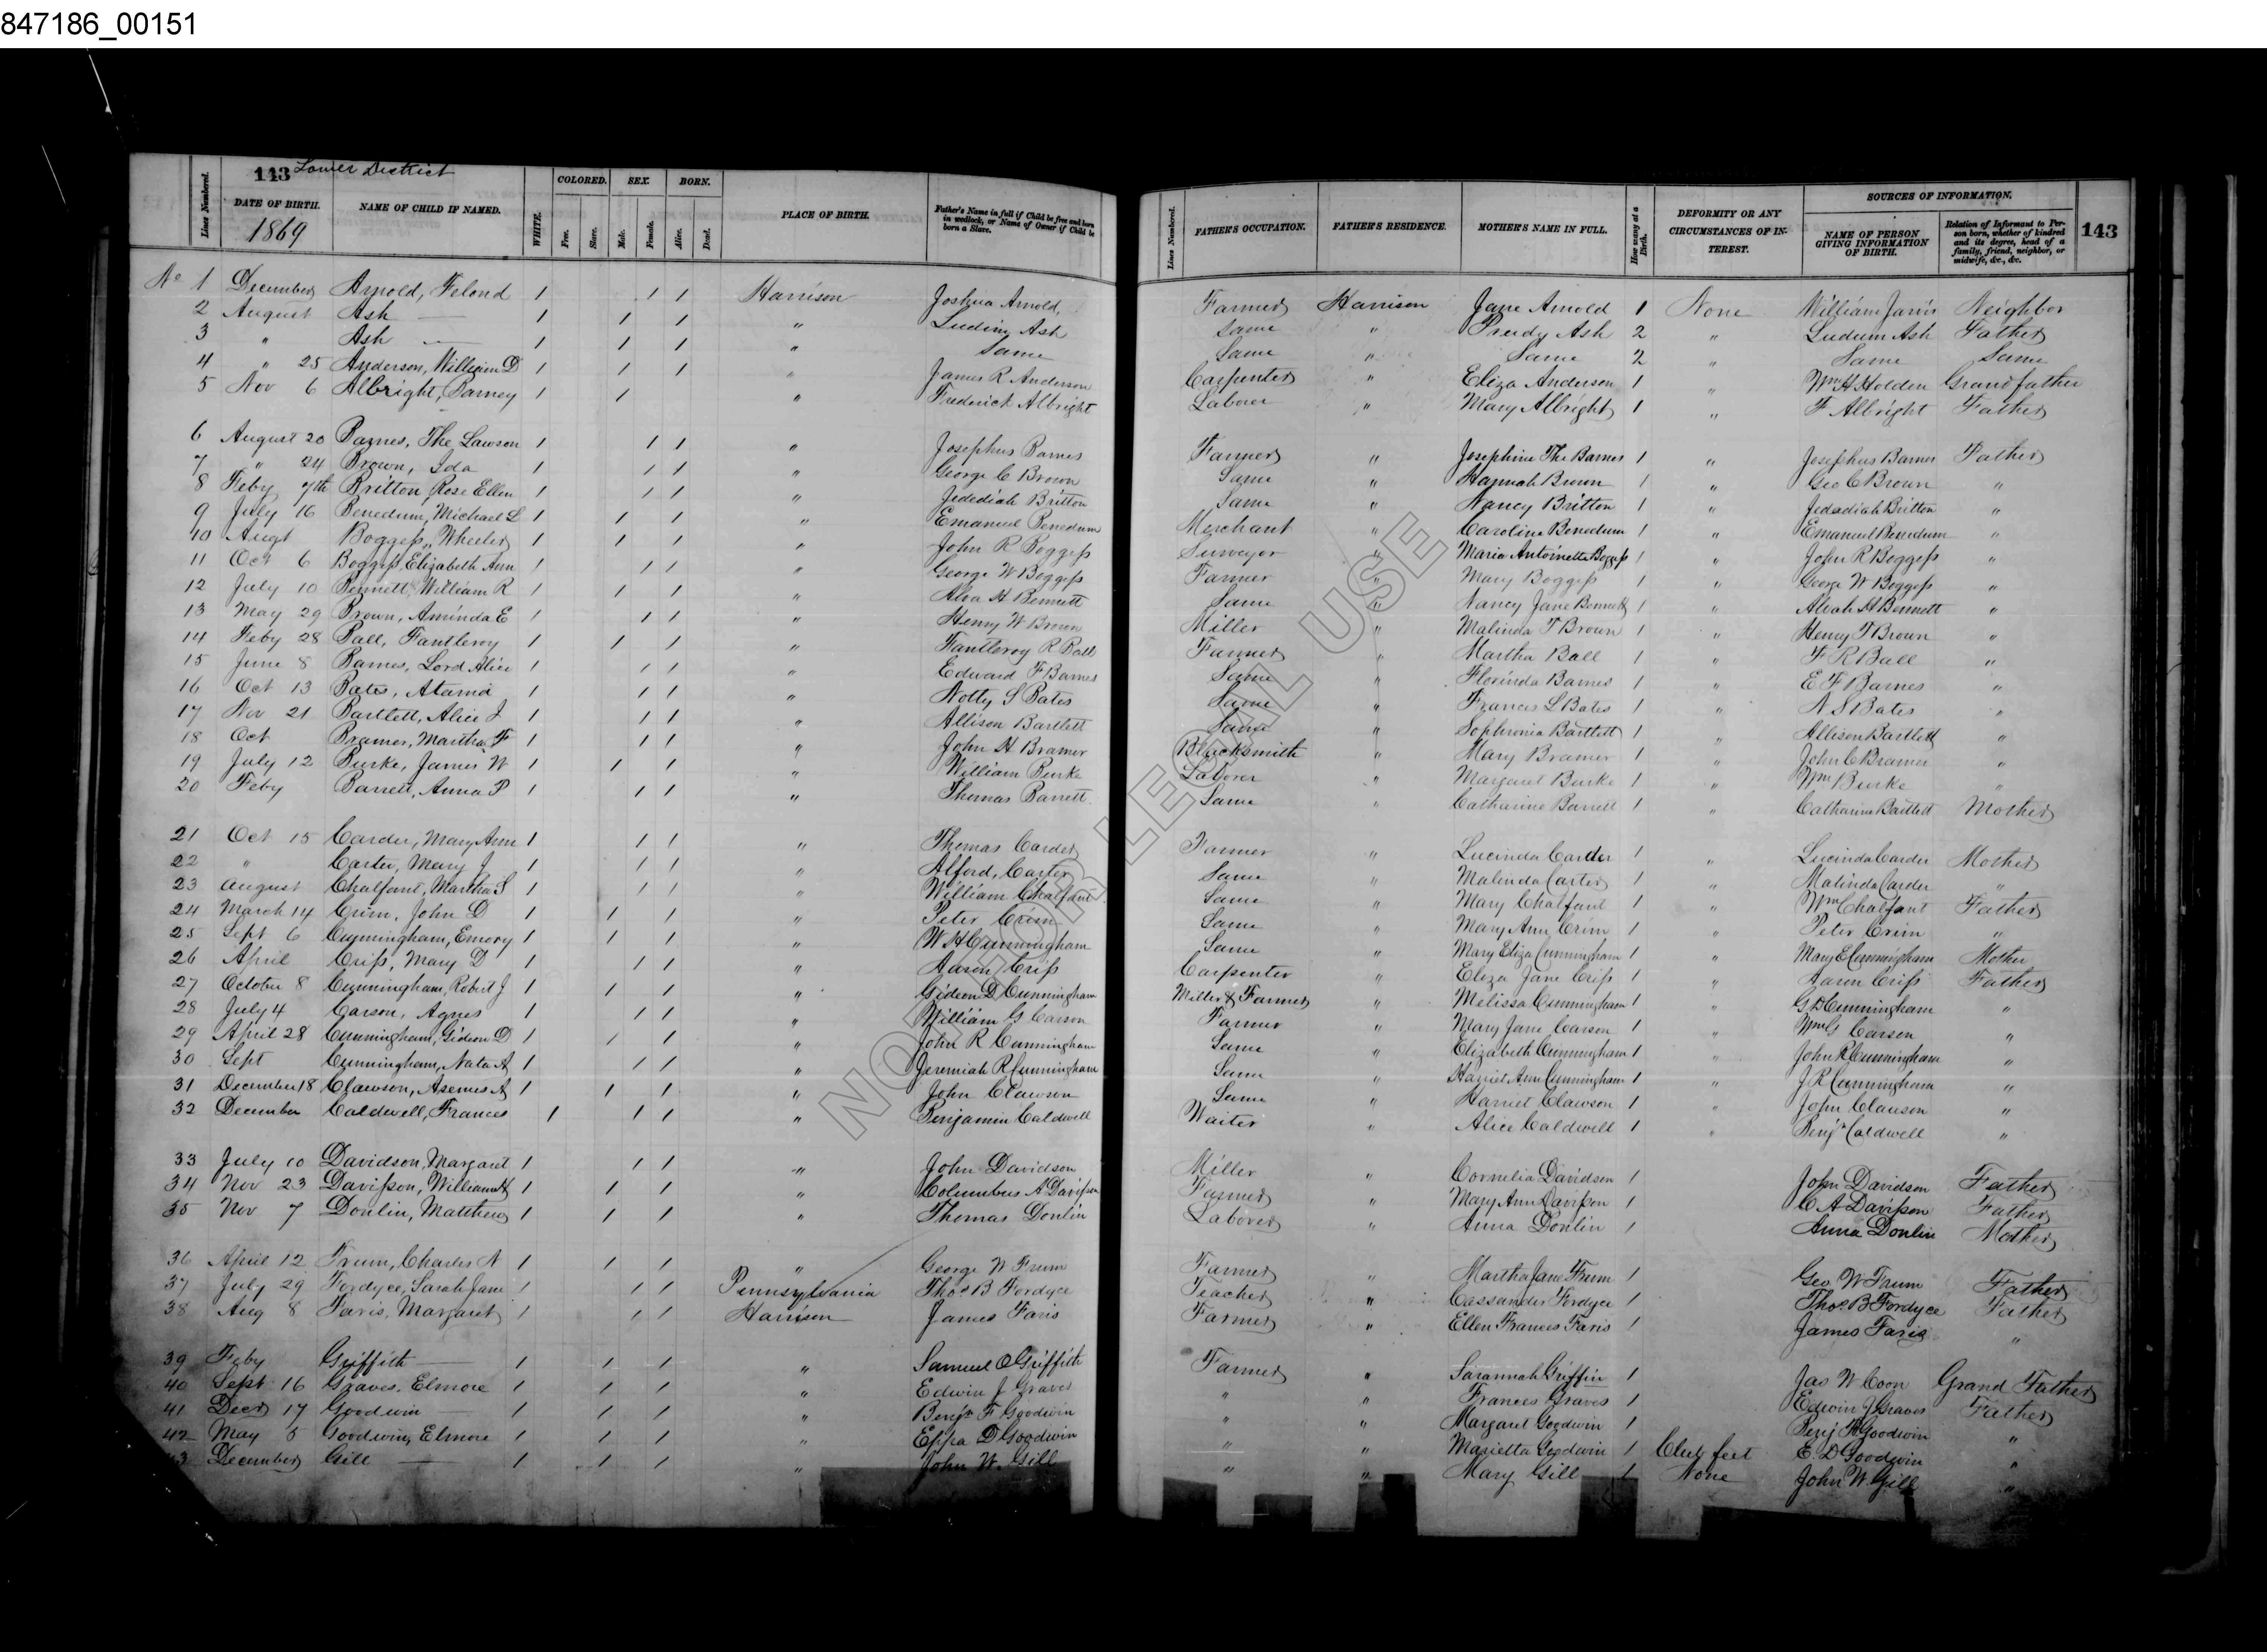 847186_00151
143 Lower District
Lines Numbered. DATE OF BIRTH. 1869 NAME OF CHILD IF NAMED. WHITE. COLORED. Free. Slave. SEX. Male. Female. BORN. Alive. Dead. PLACE OF BIRTH. Father's Name in full if Child be free and born in wedlock, or Name of Owner if Child be born a Slave. Lines Numbered. FATHER'S OCCUPATION. FATHER'S RESIDENCE. MOTHER'S NAME IN FULL. How many at a Birth. DEFORMITY OR ANY CIRCUMSTANCES OF INTEREST. SOURCES OF INFORMATION. NAME OF PERSON GIVING INFORMATION OF BIRTH. Relation of Informant to Person born, whether of kindred and its degree, head of a family, friend, neighbor, or midwife, &c., &c. 143
No 1 December Arnold, Felond 1 / / Harrison Joshua Arnold, Farmer Harrison Jane Arnold 1 None William Jarvis Neighbor
2 August Ash — 1 / / " Ludiny Ash Same " Prudy Ash 2 " Ludum Ash Father
3 " Ash — 1 / / " Same Same " Same 2 " Same Same
4 " 25 Anderson, William D 1 / / " James R Anderson Carpenter " Eliza Anderson 1 " Wm H Holden Grandfather
5 Nov 6 Albright, Barney 1 / " Frederick Albright Laborer " Mary Albright 1 " F. Albright Father
6 August 20 Barnes, The Lawson 1 / / " Josephus Barnes Farmer " Josephine The Barnes 1 " Josephus Barnes Father
7 " 24 Brown, Ida 1 / / " George C Brown Same " Hannah Brown 1 " Geo C Brown "
8 Feby 7th Britton, Rose Ellen 1 / / " Jedediah Britton Same " Nancy Britton 1 " Jedediah Britton "
9 July 16 Benedum, Michael L 1 / / " Emanuel Benedum Merchant " Caroline Benedum 1 " Emanuel Benedum "
10 Augt Boggess, Wheeler 1 / / " John R Boggess Surveyor " Maria Antoinette Boggess 1 " John R Boggess "
11 Oct 6 Boggess, Elizabeth Ann 1 / / " George W Boggess Farmer " Mary Boggess 1 " Geore W Boggess "
12 July 10 Bennett, William R 1 / / " Alva H Bennett Same " Nancy Jane Bennett 1 " Alvah H Bennett "
13 May 29 Brown, Aminda E 1 / / " Henry W Brown Miller " Malinda T Brown 1 " Henry T Brown "
14 Feby 28 Ball, Fantleroy 1 / / " Fantleroy R Ball Farmer " Martha Ball 1 " F R Ball "
15 June 8 Barnes, Lord Alice 1 / / " Edward F Barnes Same " Florinda Barnes 1 " E F Barnes "
16 Oct 13 Bates, Atamia 1 / / " Notty S Bates Same " Frances L Bates 1 " N S Bates "
17 Nov 21 Bartlett, Alice J 1 / / " Allison Bartlett Same " Sophronia Bartlett 1 " Allison Bartlett "
18 Oct Bramer, Martha F 1 / / " John H Bramer Blacksmith " Mary Bramer 1 " John C Bramer "
19 July 12 Burke, James W 1 / / " William Burke Laborer " Margaret Burke 1 " Wm Burke "
20 Feby Barrett, Anna P 1 / / " Thomas Barrett Same " Catharine Barrett 1 " Catharine Bartlett Mother
21 Oct 15 Carder, Mary Ann 1 / / " Thomas Carder Farmer " Lucinda Carder 1 " Lucinda Carder Mother
22 " Carter, Mary J 1 / / " Alford, Carter Same " Malinda Carter 1 " Malinda Carder "
23 August Chalfant, Martha S 1 / / " William Chalfant Same " Mary Chalfant 1 " Wm Chalfant Father
24 March 14 Crim, John D 1 / / " Peter Crim Same " Mary Ann Crim 1 " Peter Crim "
25 Sept 6 Cunningham, Emory 1 / / " W H Cunningham Same " Mary Eliza Cunningham 1 " Mary E Cunningham Mother
26 April Criss, Mary D 1 / / " Aaron Criss Carpenter " Eliza Jane Criss 1 " Aaron Criss Father
27 October 8 Cunningham, Robert J 1 / / " Gideon D Cunningham Miller & Farmer " Melissa Cunningham 1 " G D Cunningham "
28 July 4 Carson, Agnes 1 / / " William G Carson Farmer " Mary Jane Carson 1 " Wm G Carson "
29 April 28 Cunningham, Gideon D 1 / / " John R Cunningham Same " Elizabeth Cunningham 1 " John R Cunningham "
30 Sept Cunningham, Nata A 1 / / " Jeremiah R Cunningham Same " Harriet Ann Cunningham 1 " J R Cunningham "
31 December 18 Clawson, Asemus A 1 / / " John Clawson Same " Harriet Clawson 1 " John Clauson "
32 December Caldwell, Frances 1 / / " Benjamin Caldwell Waiter " Alice Caldwell 1 " Benj Caldwell "
33 July 10 Davidson, Margaret 1 / / " John Davidson Miller " Cornelia Davidson 1 John Davidson Father
34 Nov 23 Davisson, William H 1 / / " Columbus A Davisson Farmer " Mary Ann Davisson 1 C A Davisson Father
35 Nov 7 Donlin, Matthew 1 / / " Thomas Donlin Laborer " Anna Donlin 1 Anna Donlin Mother
36 April 12 Frum, Charles N 1 / / " George W Frum Farmer " Martha Jane Frum 1 Geo W Frum Father
37 July 29 Fordyce, Sarah Jane 1 / / Pennsylvania Thos B Fordyce Teacher " Cassander Fordyce 1 Thos B Fordyce Father
38 Aug 8 Faris, Margaret 1 / / Harrison James Faris Farmer " Ellen Frances Faris 1 James Faris "
39 Feby Griffith — 1 / / " Samuel O Griffith Farmer " Sarannah Griffin 1 Jas W Coon Grand Father
40 Sept 16 Graves, Elmore 1 / / " Edwin J Graves " " Frances Graves 1 Edwin J Graves Father
41 Decr 17 Goodwin — 1 / / " Benjn F Goodwin " " Margaret Goodwin 1 Benj F Goodwin "
42 May 5 Goodwin, Elmore 1 / / " Eppa D Goodwin " " Marietta Goodwin 1 Club feet E. D Goodwin "
43 December Gill — 1 / / " John W. Gill " " Mary Gill 1 None John W. Gill "
NOT FOR LEGAL USE